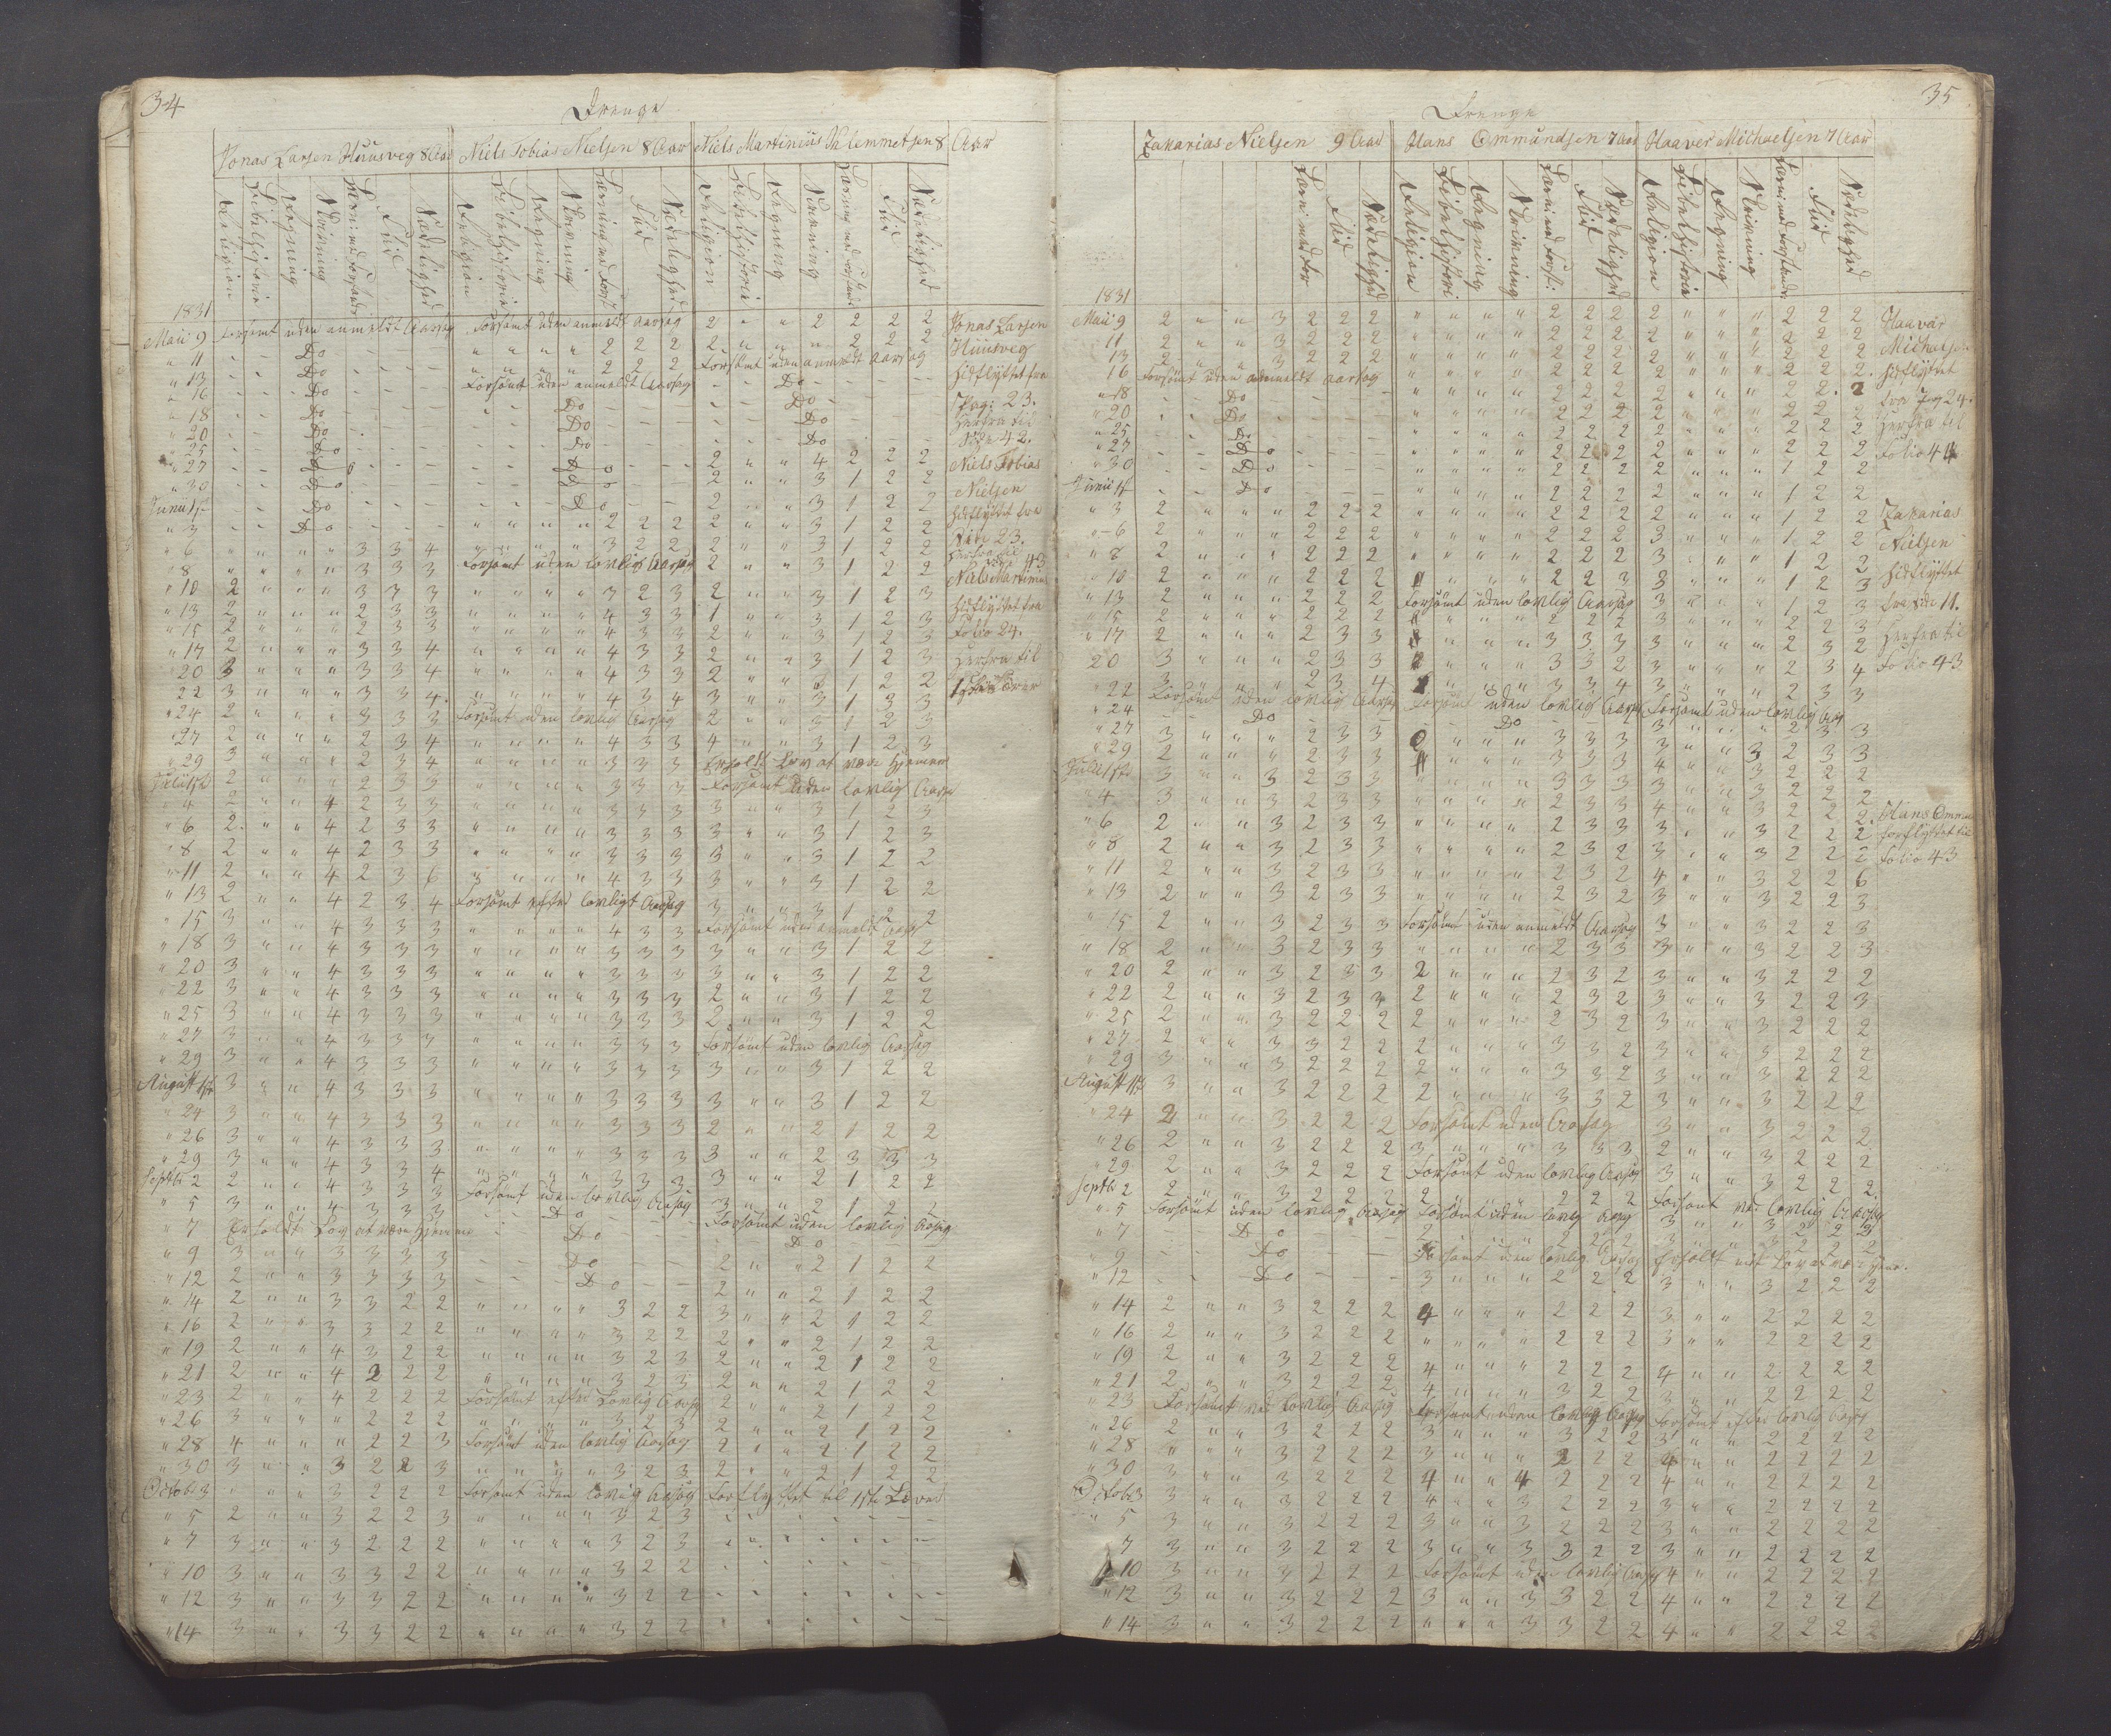 34
Drenge
Jonas Larsen Huusveg 8 Aar Niels Tobias Nielsen 8 Aar Niels Martinius Klemmetsen 8 Aar
Religion Bibelhistorie Regning Skrivning Flid Sædelighed
Religion Bibelhistorie Regning Skrivning Flid Sædelighed
Religion Bibelhistorie Regning Skrivning Flid Sædelighed
1831
Maii 9 Forsømt uden anmeldt Aarsag Forsømt uden anmeldt Aarsag 2 " " 2 2 2 2
" 11 Do " " " " 2 2 2 2 " " " 2 2 2
" 13 Do " " " " 2 2 2 Forsømt uden anmeldt Aarsag
" 16 Do Forsømt uden anmeldt Aarsag Do
" 18 Do Do Do
" 20 Do Do Do
" 25 Do Do Do
" 27 Do Do 2 " " 4 2 2 2
" 30 Do Do 2 " " 3 1 2 2
Junii 1ste Do Do 2 " " 3 1 2 2
" 3 Do " " " " 2 2 2 2 " " 3 1 2 2
" 6 " " " " 3 3 4 " " " " 3 2 2 2 " " 3 1 2 2
" 8 " " " " 3 3 3 Forsømt uden lovlig Aarsag 2 " " 3 1 2 2
" 10 2 " " " 3 3 3 " " " " 3 2 3 2 " " 3 1 2 3
" 13 2 " " " 2 3 3 " " " " 4 3 3 1 " " 3 1 2 3
" 15 2 " " " 2 3 3 " " " " 4 3 3 2 " " 3 1 2 3
" 17 2 " " " 3 3 4 " " " " 4 3 3 2 " " 3 1 2 3
" 20 3 " " " 3 3 4 " " " " 4 3 3
22 3 " " " 3 3 4 " " " " 4 3 4 3 " " 3 1 3 3
" 24 2 " " " 3 3 3 Forsømt uden lovlig Aarsag 2 " " 3 1 2 3
" 27 2 " " " 2 3 4 " " " " 4 3 3 4 " " 3 1 2 3
" 29 3 " " " 2 3 4 " " " " 3 3 3 Erholdt Lov at være hjemme
Julii 1ste 2 " " " 2 3 3 " " " " 3 3 3 Forsømt uden lovlig Aarsag
" 4 2 " " 4 2 3 3 " " " " 3 3 3 3 " " 3 1 2 3
" 6 2 " " 4 2 3 3 " " " " 3 3 3 3 " " 3 1 2 3
" 8 2 " " 4 2 3 3 " " " " 3 3 3 3 " " 3 1 2 2
" 11 2 " " 4 2 3 6 3 " " " 4 3 3 3 " " 3 1 2 2
" 13 2 " " 4 2 3 4 Forsømt efter lovligt Aarsag 3 " " 3 1 2 2
" 15 3 " " 4 3 3 3 " " " " 4 3 3 Forsømt uden anmeldt Aars
" 18 3 " " 4 3 3 3 " " " " 3 3 3 3 " " 3 1 2 2
" 20 3 " " 4 3 3 3 " " " " 3 3 3 3 " " 3 1 2 2
" 22 3 " " 4 3 3 3 " " " " 3 3 3 2 " " 3 1 2 2
" 25 3 " " 4 3 3 3 " " " " 3 3 3 2 " " 3 1 2 2
" 27 3 " " 4 3 3 3 " " " " 3 3 3 Forsømt uden lovlig Aarsag
" 29 3 " " 4 3 3 3 " " " " 3 3 3 3 " " 3 1 2 2
August 1ste 3 " " 4 3 3 3 " " " " 3 3 3 3 " " 3 1 2 2
" 24 3 " " 4 3 3 3 " " " " 3 3 3 2 " " 2 1 2 2
" 26 3 " " 4 3 3 3 " " " " 3 3 3 3 " " 2 3 3 3
" 29 3 " " 4 3 3 4 " " " " 3 3 3 3 " " 2 1 2 2
Septbr 2 2 " " 4 3 3 3 Forsømt uden lovlig Aarsag 3 " " 2 1 2 2
" 5 3 " " 4 3 3 3 Do Forsømt uden lovlig Aarsag
" 7 Erholdt Lov at være hjemme Do Do
" 9 3 " " 3 3 3 3 Do 2 " " 2 1 2 2
" 12 2 " " 3 3 3 3 Do 2 " " 2 1 2 2
" 14 2 " " 3 3 2 2 " " " " 3 2 2 3 " " 2 1 2 2
" 16 2 " " 3 3 2 2 " " " " 3 2 2 2 " " 2 1 2 2
" 19 2 " " 4 3 2 2 " " " " 3 2 3 2 " " 2 1 2 2
" 21 2 " " 4 2 2 2 " " " " 3 2 3 2 " " 2 1 2 2
" 23 2 " " 4 2 2 2 Forsømt efter Lovlig Aarsag 2 " " 2 1 2 2
" 26 3 " " " 2 2 2 " " " " 3 2 3 2 " " 2 1 2 2
" 28 4 " " " 2 2 3 Forsømt uden lovlig Aarsag 2 " " 2 1 2 2
" 30 3 " " 3 2 2 3 " " " " 3 2 3 2 " " 2 1 2 2
Octobr 3 " " " 3 2 2 2 Forsømt uden lovlig Aarsag Forflyttet til 1ste
" 5 2 " " 3 2 2 3 " " " " 3 2 3
" 7 3 " " 3 2 2 2 " " " " 3 2 3
" 10 3 " " 3 3 2 2 " " " " 3 2 2
" 12 3 " " 3 3 2 2 " " " " 3 2 2
" 14 3 " " 3 3 2 2 " " " " 3 2 2
Jonas Larsen
Huusveg
hidflyttet fra
Pag: 23.
Herfra til
Side 42.
Niels Tobias
Nielsen
hidflyttet fra
Side 23.
Herfra til
Side 43
Niels Martinius
hidflyttet fra
Folio 24.
Herfra til
35
Drenge
Zakarias Nielsen 9 Aar Hans Ommundsen 7 Aar Haaver Michaelsen 7 Aar
Flid Sædelighed
Religion Bibelhistori Regning Skrivning Flid Sædelighed
Religion Bibelhistorie Regning Skrivning Flid Sædelighed
1831
Maii 9 2 " " 3 2 2 2 " " " " 2 2 2 2 " " " 2 2 2
11 2 " " 3 2 2 2 " " " " 2 2 2 2 " " " 2 2 2
13 2 " " 3 2 2 2 " " " " 2 2 2 2 " " " 2 2 2
16 Forsømt uden anmeldt Aarsag " " " " 2 2 2 2 " " " 2 2 2
" 18 Do " " " " 2 2 2 2 " " " 2 2 2
" 20 Do " " " " 2 2 2 2 " " " 2 2 2
" 25 Do " " " " 2 2 2 2 " " " 2 2 2
" 27 Do " " " " 2 2 2 2 " " " 2 2 2
" 30 Do " " " " 2 2 2 2 " " " 1 2 2
Junii 1ste Do " " " " 2 2 2 2 " " " 1 2 2
" 3 2 " " " 2 2 2 " " " " 2 2 2 2 " " " 1 2 2
" 6 2 " " " 2 2 2 " " " " 2 2 2 3 " " " 1 2 2
" 8 2 " " " 2 2 2 " " " " 2 2 2 3 " " " 1 2 2
" 10 2 " " " 2 2 2 " " " " 2 2 3 3 " " " 1 2 3
" 13 2 " " " 2 2 2 Forsømt uden lovlig Aarsag 3 " " " 1 2 3
" 15 2 " " " 2 2 2 " " " 2 2 2 3 " " " 2 2 3
" 17 2 " " " 2 3 3 " " " 3 3 3 3 " " " 2 3 2
20 3 " " " 2 3 3 " " " 3 3 2 3 " " " 2 3 4
" 22 3 " " " 2 3 4 " " " 3 3 4 3 " " " 2 3 3
" 24 Forsømt uden lovlig Aarsag Forsømt uden lovlig Aarsag Forsømt uden lovlig Aars
" 27 Do Do 3 " " " 2 3 3
" 29 3 " " " 2 3 3 0 " " " 3 3 3 3 " " 3 2 3 3
Julii 1ste 3 " " 3 2 3 3
" 4 3 " " 3 2 3 3 " " " " 2 3 3 4 " " 3 2 2 2
" 6 2 " " 3 2 3 3 " " " " 2 3 3 3 " " 3 2 2 2
" 8 2 " " 3 2 3 3 " " " " 2 3 2 3 " " 3 2 2 2
" 11 2 " " 3 2 3 3 " " " " 2 3 2 4 " " 3 2 2 6
" 13 2 " " 3 2 3 3 " " " " 2 3 2 3 " " 3 2 2 3
" 15 2 " " 3 2 3 3 Forsømt uden anmeldt Aarsag 3 " " 3 2 2 3
" 18 2 " " 3 2 3 3 " " " " 2 3 3 3 " " 3 2 2 3
" 20 2 " " 3 2 3 3 2 " " " 2 3 2 3 " " 3 2 2 2
" 22 2 " " 3 2 3 3 2 " " " 2 3 2 3 " " 3 2 2 3
" 25 2 " " 3 2 2 2 2 " " " 2 3 2 3 " " 3 2 2 2
" 27 2 " " 3 3 2 2 2 " " " 3 3 2 3 " " 3 2 2 2
" 29 3 " " 3 2 2 2 2 " " " 3 3 2 3 " " 3 2 2 2
August 1ste 3 " " 3 2 2 2 2 " " " 3 3 2 3 " " 3 2 2 2
" 24 2 " " 3 2 2 2 Forsømt uden Aarsag 3 " " 3 2 2 2
" 26 2 " " 3 2 2 2 3 " " " 3 3 3 2 " " 3 2 2 2
" 29 2 " " 3 2 2 2 Forsømt uden lovlig Aarsag 3 " " 3 2 2 2
Septbr 2 2 " " 3 2 2 2 2 " " " 2 2 2 Forsømt ved lovlig Aarsag
" 5 Forsømt uden lovlig Aarsag Forsømt uden lovlig Aarsag 3 " " 3 2 2 3
" 7 Do 2 " " " 2 2 2 3 " " 3 2 2 2
" 9 Do Forsømt uden lovlig Aarsag
" 12 Do 3 " " " 2 2 2 3 " " 3 2 2 2
" 14 2 " " 3 2 2 2 4 " " " 2 2 2 3 " " 2 2 2 2
" 16 2 " " 3 2 2 2 " " " " 2 2 2 3 " " 2 2 2 2
" 19 2 " " 3 2 2 2 4 " " " 2 2 2 4 " " 2 2 2 2
" 21 2 " " 3 2 2 2 4 " " " 3 2 2 3 " " 2 2 2 2
" 23 Forsømt ved lovlig Aarsag Forsømt uden lovlig Aarsag Forsømt efter lovlig Aars
" 26 2 " " 3 2 2 2 3 " " " 3 2 2 3 " " 2 2 2 2
" 28 " " " 3 2 2 2 3 " " " 2 2 2 4 " " 2 2 2 2
" 30 3 " " 3 2 2 2 4 " " 4 2 2 2 4 " " 2 2 2 2
Octobr 3 3 " " 3 2 2 2 4 " " 3 2 2 2 3 " " 2 2 2 2
" 5 3 " " 3 2 2 2 3 " " 3 2 2 2 3 " " 2 2 2 2
7 3 " " 3 2 2 2 3 " " 3 3 2 2 3 " " 2 2 2 2
" 10 3 " " 3 2 2 2 Forsømt uden lovlig Aarsag 4 " " 2 2 2 2
" 12 3 " " 3 2 2 2 3 " " 3 3 2 2 4 " " 2 2 2 2
" 14 3 " " 3 2 2 2 " " " 3 3 2 2 4 " " 2 2 2 2
Haaver
Michaelsen
hidflyttet
fra Pag 24.
Herfra til
Folio 44
Zakarias
Nielsen
hidflyttet
fra Side 11.
Herfra til
Folio 43
Hans Ommun
forflyttet til
Folio 43